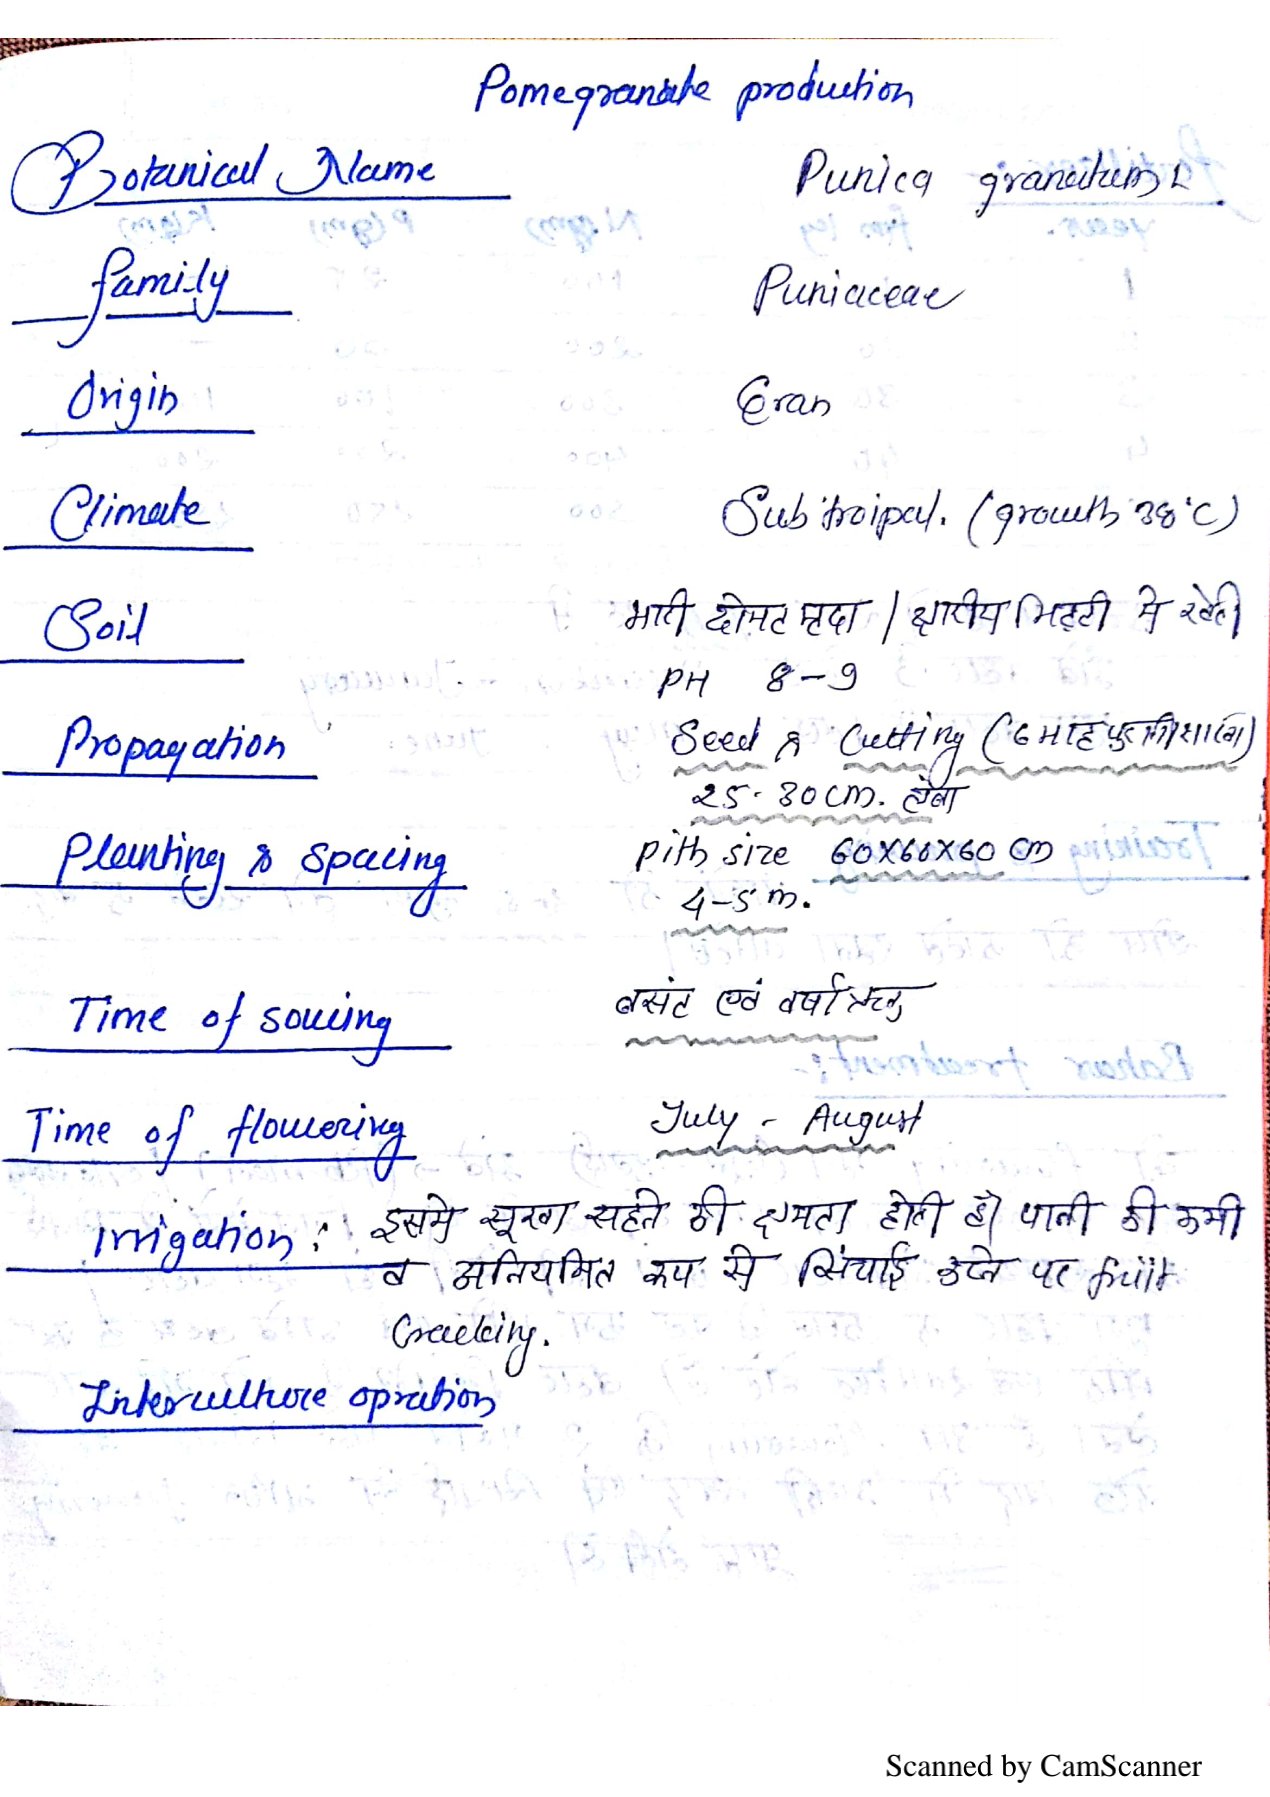 Pomegranate production
Botanical Name Punica granatum L
family Puniaceae
Origin Eran
Climate Subtroipal. (growth 38°C)
Soil भारी दोमट मृदा / क्षारीय मिट्टी मे खेती
PH 8-9
Propagation Seed & Cutting (6 माह पुरानी शाखा)
25-30cm. लंबा
Planting & spacing pith size 60x60x60 cm
4-5 m.
Time of sowing बसंत एवं वर्षा ऋतु
Time of flowering July - August
Irrigation : इसमे सूखा सहने की क्षमता होती है। पानी की कमी
व अनियमित रूप से सिंचाई करने पर fruit
Cracking.
Interculture opration
Scanned by CamScanner